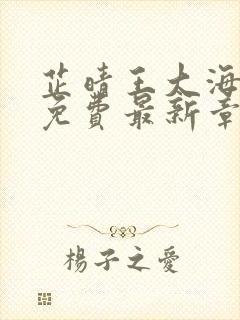 芷晴王大海
免費最新章
楊子之愛